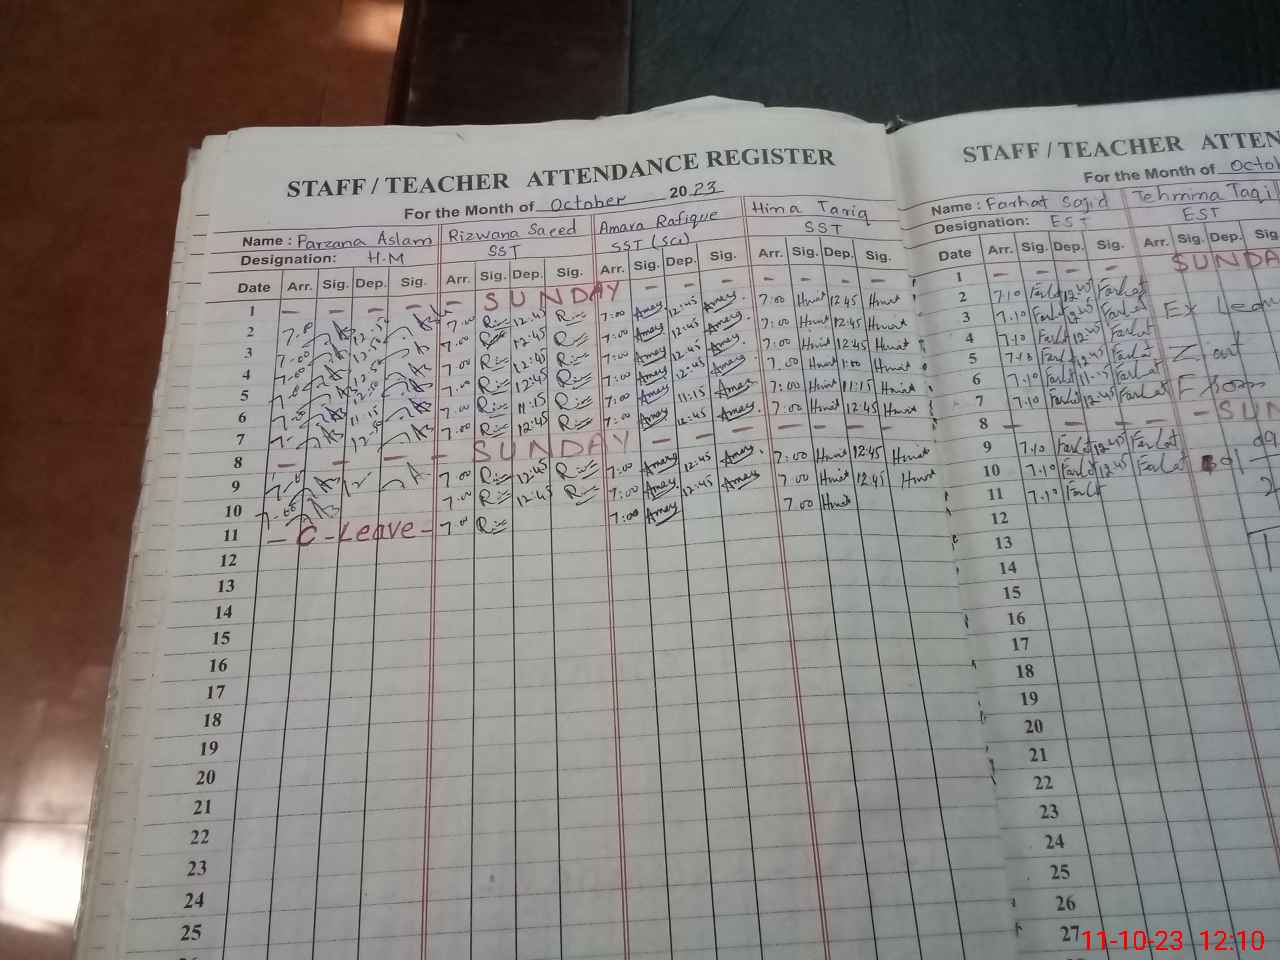 STAFF / TEACHER ATTENDANCE REGISTER
For the Month of October 2023
Name : Farzana Aslam Rizwana Saeed Amara Rafique Hina Tariq
Designation: H.M SST SST (Sci) SST
Date Arr. Sig. Dep. Sig. Arr. Sig. Dep. Sig. Arr. Sig. Dep. Sig. Arr. Sig. Dep. Sig.
1 - - - - - SUNDAY - - - - - -
2 7.00 12:50 7.00 12:45 7:00 Amara 12:45 Amara 7:00 Hina 12:45 Hina
3 7.00 12:50 7.00 12:45 7:00 Amara 12:45 Amara 7:00 Hina 12:45 Hina
4 7.00 12:50 7.00 12:45 7:00 Amara 12:45 Amara 7:00 Hina 12:45 Hina
5 7.00 12:50 7.00 12:45 7:00 Amara 12:45 Amara 7:00 Hina 1:00 Hina
6 7.00 11:15 7.00 11:15 7:00 Amara 11:15 Amara 7:00 Hina 11:15 Hina
7 12:50 7.00 12:45 7:00 Amara 12:45 Amara 7:00 Hina 12:45 Hina
8 - - - - - SUNDAY - - - - - - -
9 7.00 7.00 12:45 7:00 Amara 12:45 Amara 7:00 Hina 12:45 Hina
10 7.00 7.00 12:45 7:00 Amara 12:45 Amara 7 00 Hina 12:45 Hina
11 - C - Leave - 7.00 7:00 Amara 7 00 Hina
12
13
14
15
16
17
18
19
20
21
22
23
24
25
STAFF / TEACHER ATTEN
For the Month of Octo
Name : Farhat Sajid Tehmina Taqi
Designation: EST EST
Date Arr. Sig. Dep. Sig. Arr. Sig. Dep. Sig
1 - - - - SUNDA
2 7.10 Farhat 12:45 Farhat
3 7.10 Farhat 12:45 Farhat Ex Leav
4 7.10 Farhat 12:45 Farhat
5 7.10 Farhat 12:45 Farhat
6 7.10 Farhat 11:15 Farhat
7 7.10 Farhat 12:45 Farhat
8 - - - - - SUN
9 7.10 Farhat 12:45 Farhat
10 7.10 Farhat 12:45 Farhat
11 7.10 Farhat
12
13
14
15
16
17
18
19
20
21
22
23
24
25
26
27
11-10-23 12:10